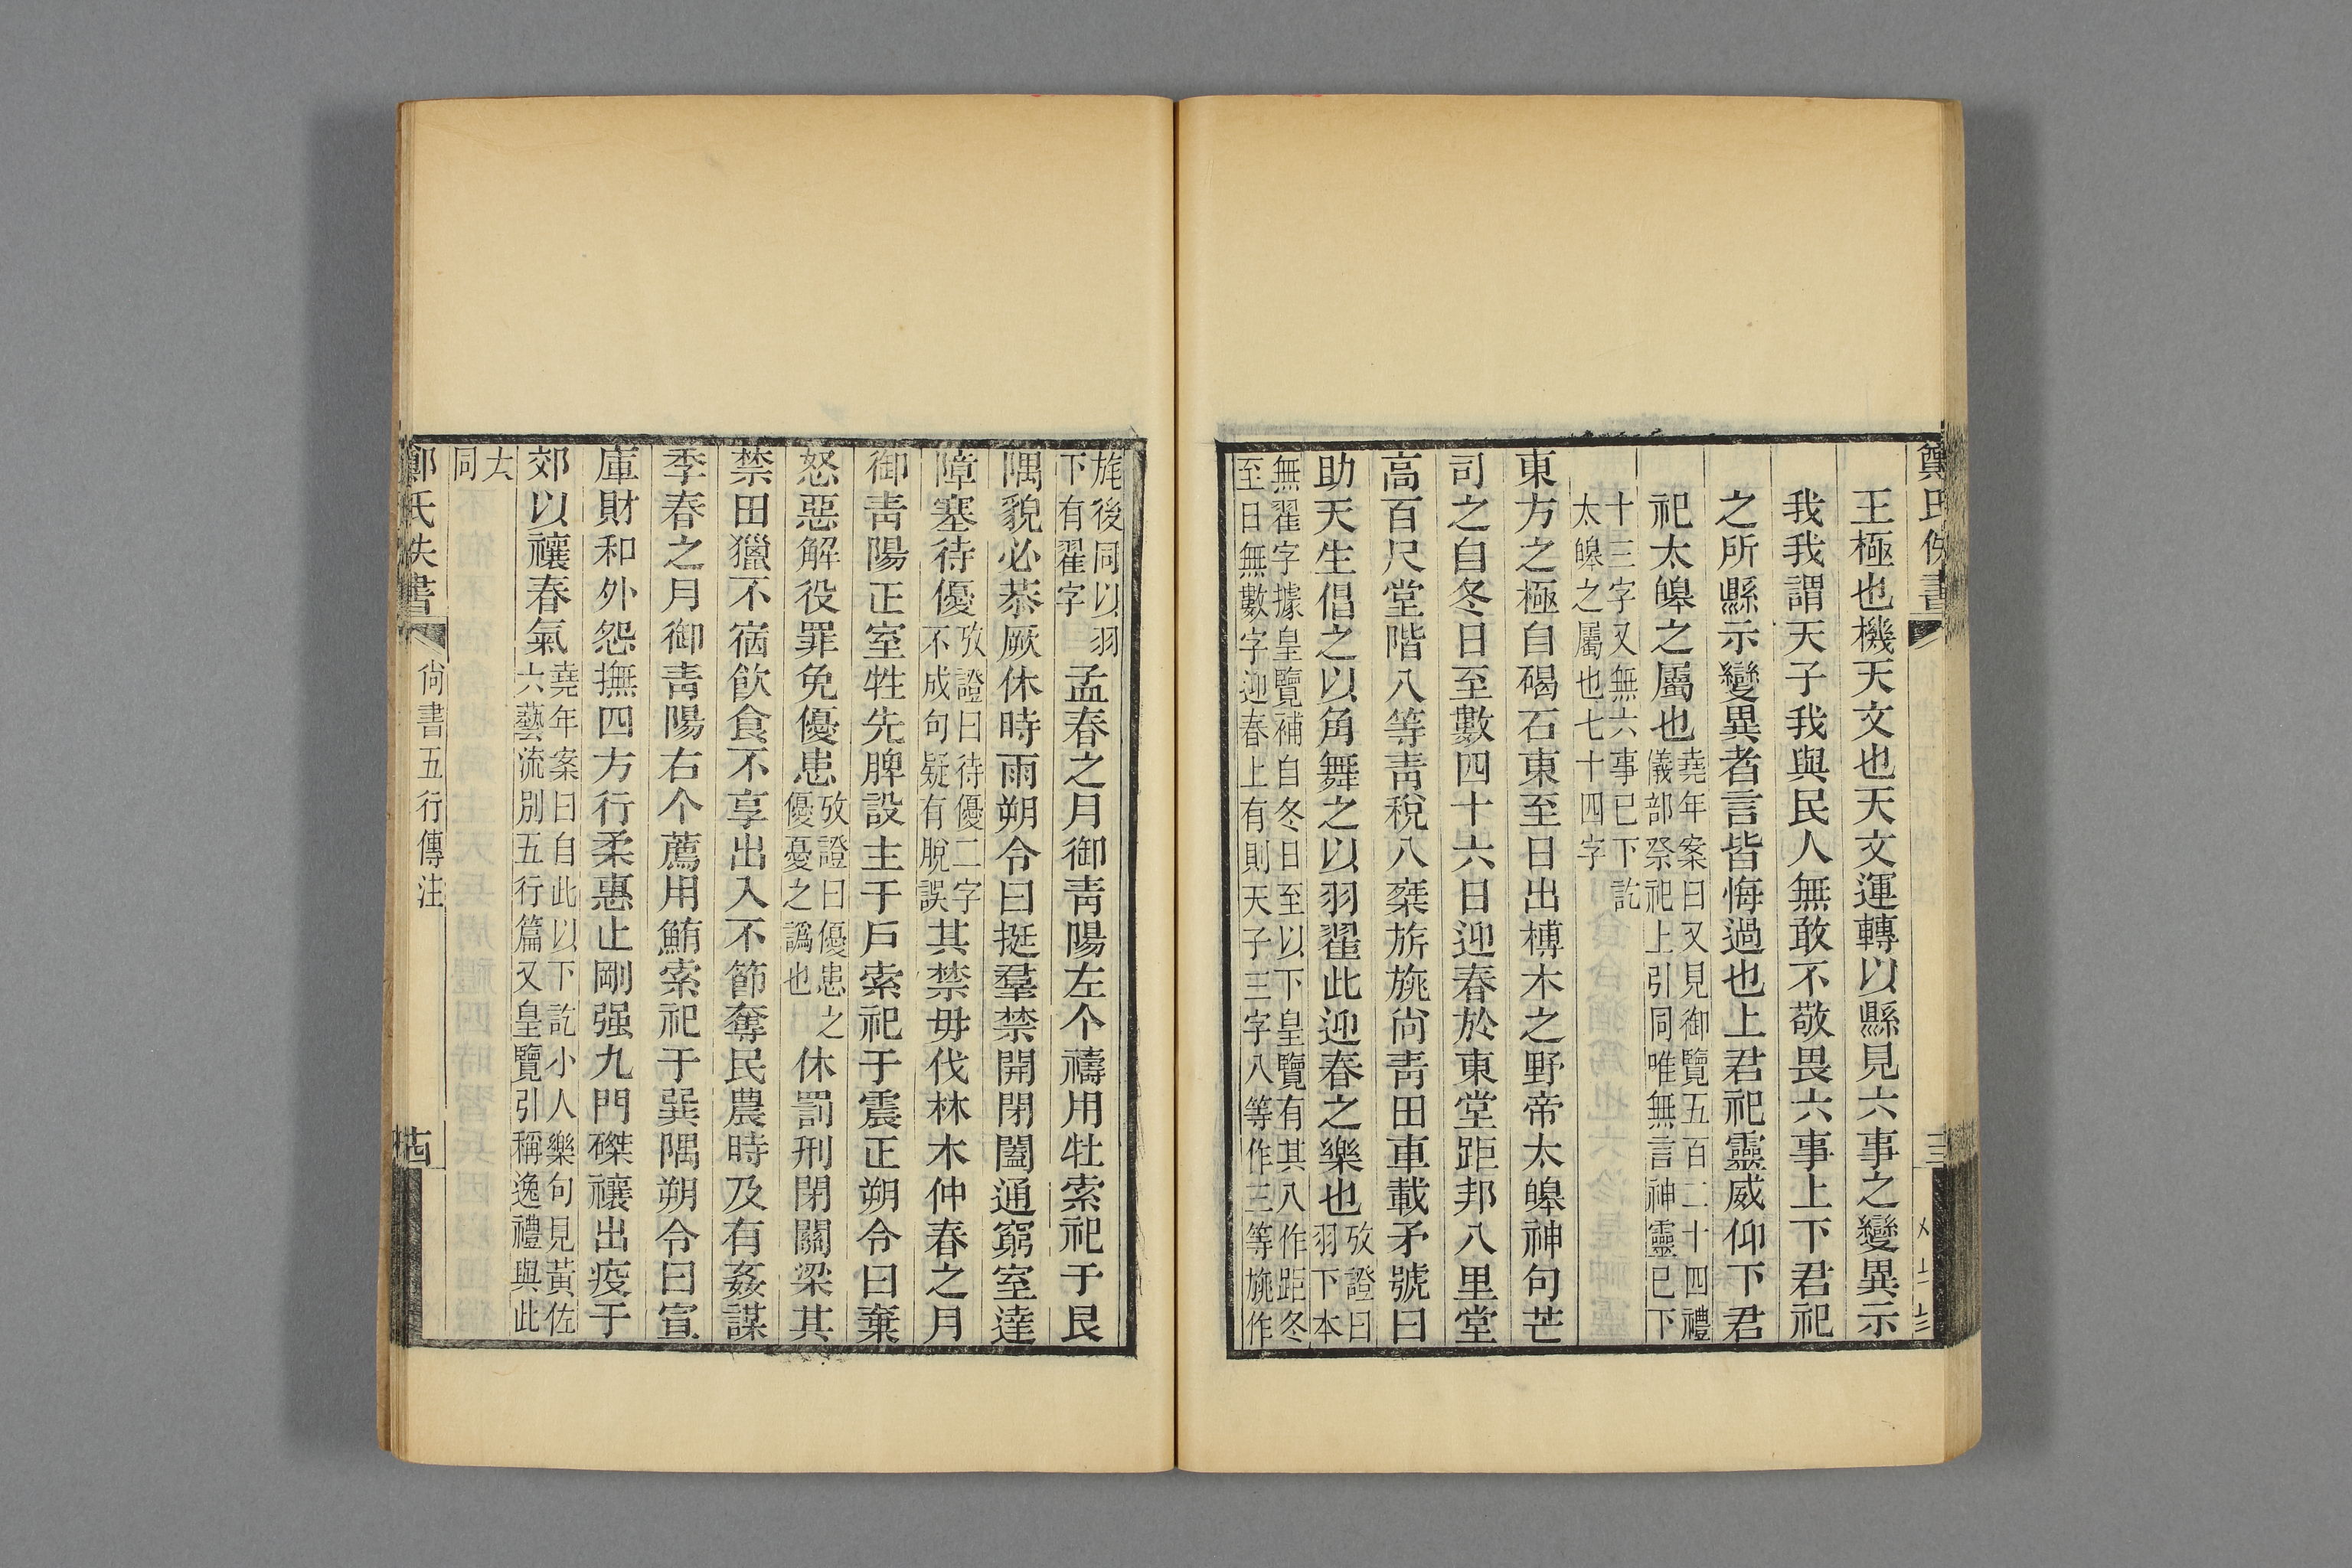 王極也機天文也天文運轉以縣見六事之變異示
我我謂天子我與民人無敢不敬畏六事上下君祀
之所縣示變異者言皆悔過也上君祀靈威仰下君
祀太皞之屬也堯年案曰又見御覽五百二十四禮
儀部祭祀上引同唯無言神靈已下
十三字又無六事已下訖
太皞之屬也七十四字
東方之極自碣石東至日出榑木之野帝太皞神句芒
司之自冬日至數四十六日迎春於東堂距邦八里堂
高百尺堂階八等青稅八椉旂旐尚青田車載矛號曰
助天生倡之以角舞之以羽翟此迎春之樂也攷證曰
羽下本
無翟字據皇覽補自冬日至以下皇覽有其八作距冬
至日無數字迎春上有則天子三字八等作三等旐作
旄後同以羽
下有翟字
孟春之月御青陽左个禱用牡索祀于艮
隅貌必恭厥休時雨朔令曰挺羣禁開閉闔通窮窒達
障塞待優攷證曰待優二字
不成句疑有脫誤
其禁毋伐林木仲春之月
御青陽正室牲先脾設主于戶索祀于震正朔令曰棄
怒惡解役罪免優患攷證曰優患之
優憂之譌也
休罰刑閉關梁其
禁田獵不宿飲食不享出入不節奪民農時及有姦謀
季春之月御青陽右个薦用鮪索祀于巽隅朔令曰宣
庫財和外怨撫四方行柔惠止剛强九門磔禳出疫于
郊以禳春氣堯年案曰自此以下訖小人樂句見黃佐
六藝流別五行篇又皇覽引稱逸禮與此
大
同
鄭氏佚書
尚書五行傳注